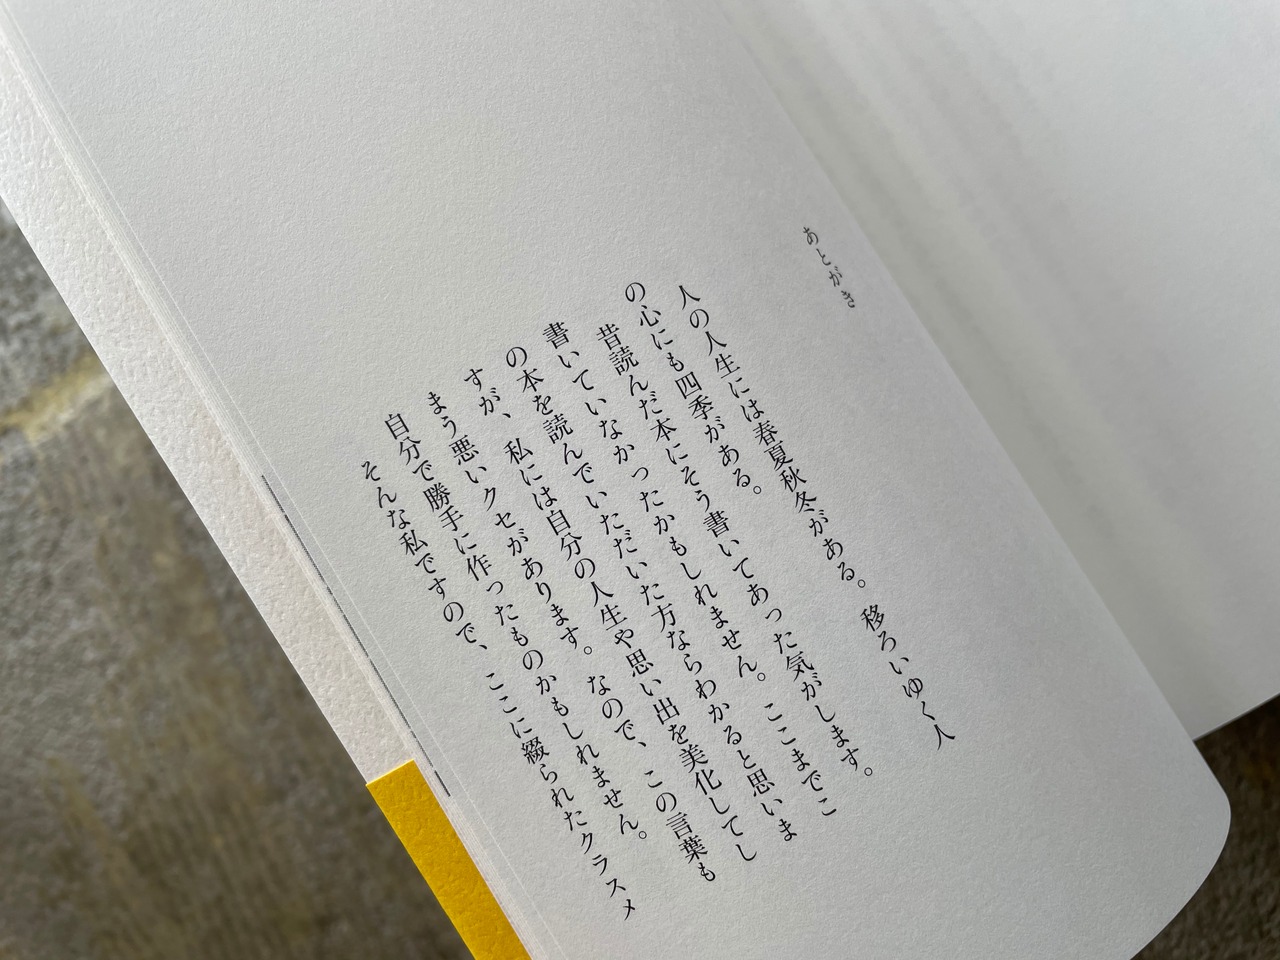 あとがき
人の人生には春夏秋冬がある。移ろいゆく人
の心にも四季がある。
昔読んだ本にそう書いてあった気がします。
書いていなかったかもしれません。ここまでこ
の本を読んでいただいた方ならわかると思いま
すが、私には自分の人生や思い出を美化してし
まう悪いクセがあります。なので、この言葉も
自分で勝手に作ったものかもしれません。
そんな私ですので、ここに綴られたクラスメ